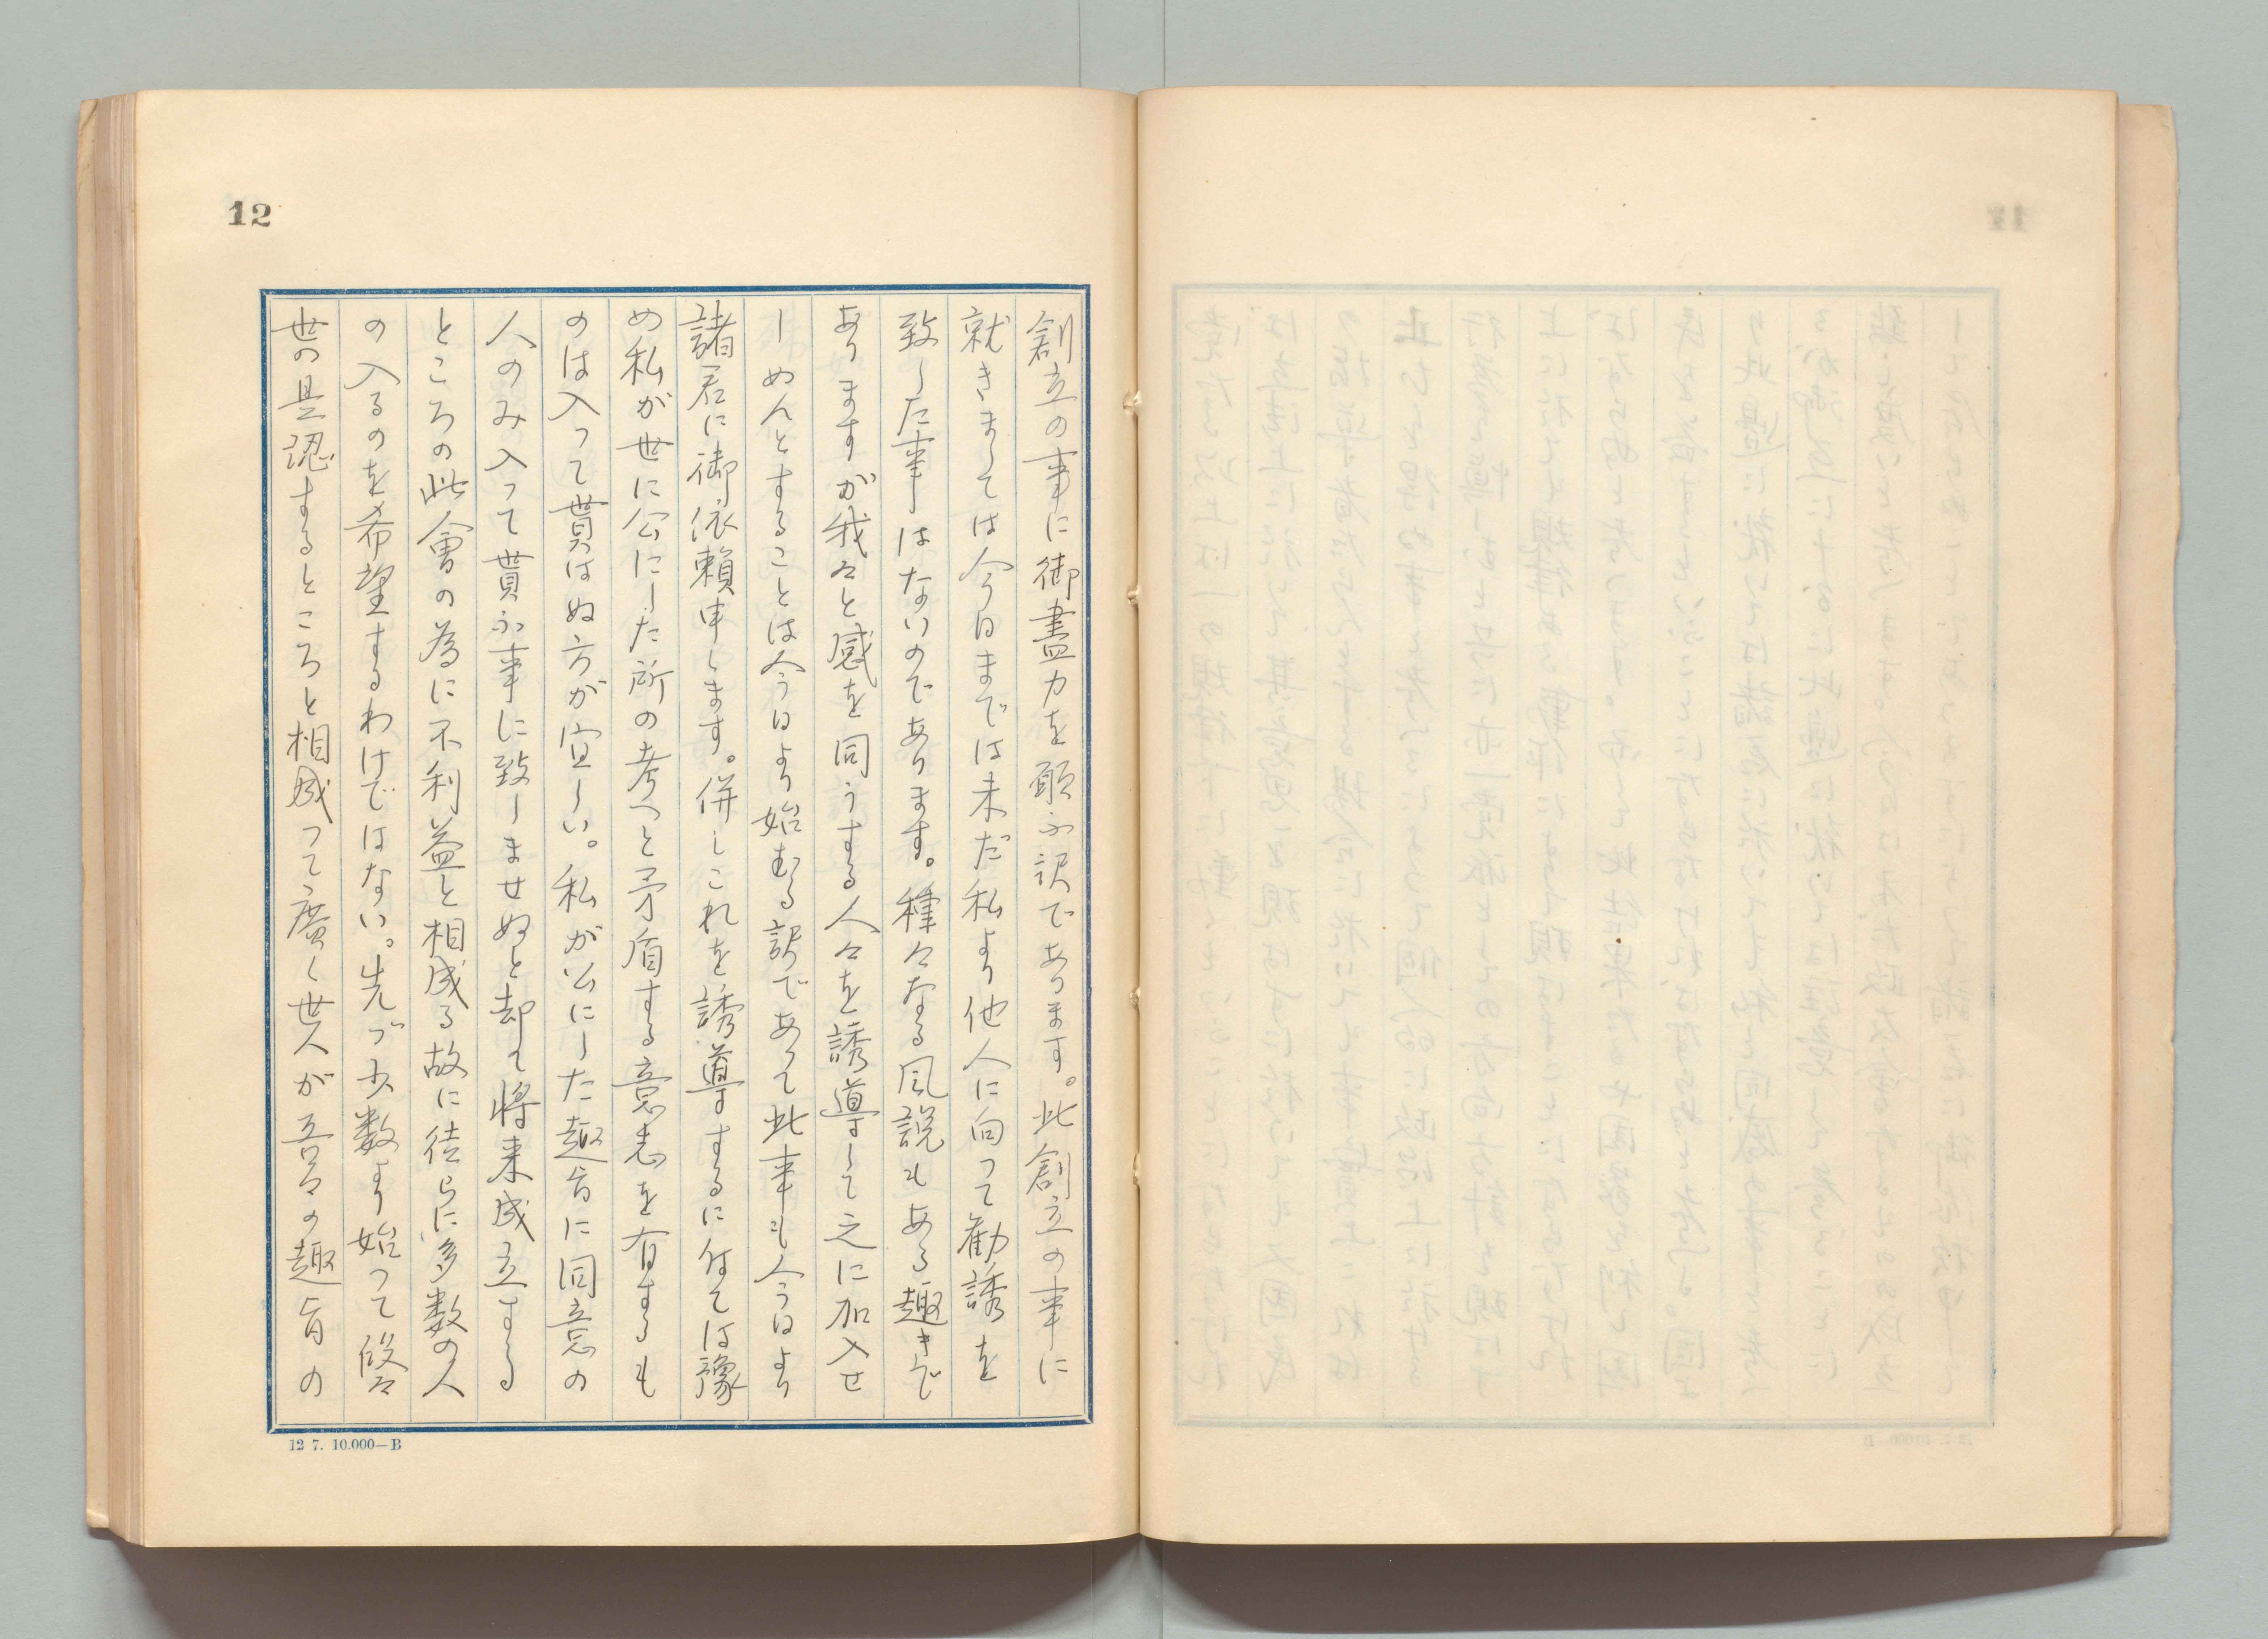 12
創立の事に御盡力を願ふ訳であります。此創立の事に
就きましては今日までは未だ私より他人に向って勧誘を
致した事はないのであります。種々なる風説もある趣きで
ありますが我々と感を同うする人々を誘導して之に加入せ
しめんとすることは今日より始むる訳であって此事も今日より
諸君に御依頼申します。併しこれを誘導するに付ては豫
め私が世に公にした所の考へと矛盾する意志を有するも
のは入って貰はぬ方が宜しい。私が公にした趣旨に同意の
人のみ入って貰ふ事に致しませぬと却て将来成立する
ところの此會の為に不利益と相成る故に徒らに多数の人
の入るのを希望するわけではない。先づ少数より始って段々
世の是認するところと相成って廣く世人が吾々の趣旨の
12 7. 10.000—B